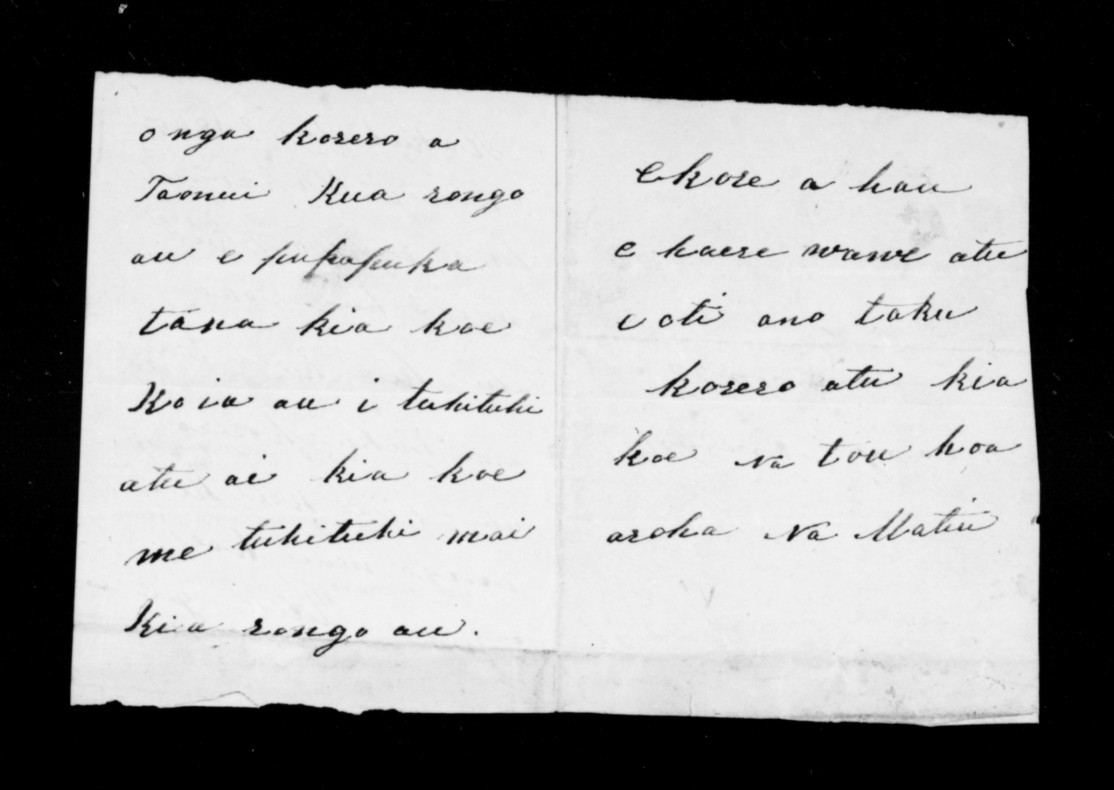 onga korero a
Taonui Kua rongo
au e pupapuka
tana kia koe
Koia au i tuhituhi
atu ai kia koe
me tuhituhi mai
Kia rongo au.
Ekore a hau
e haere wawe atu
i oti ano taku
korero atu kia
koe na tou hoa
aroha Na Matiu